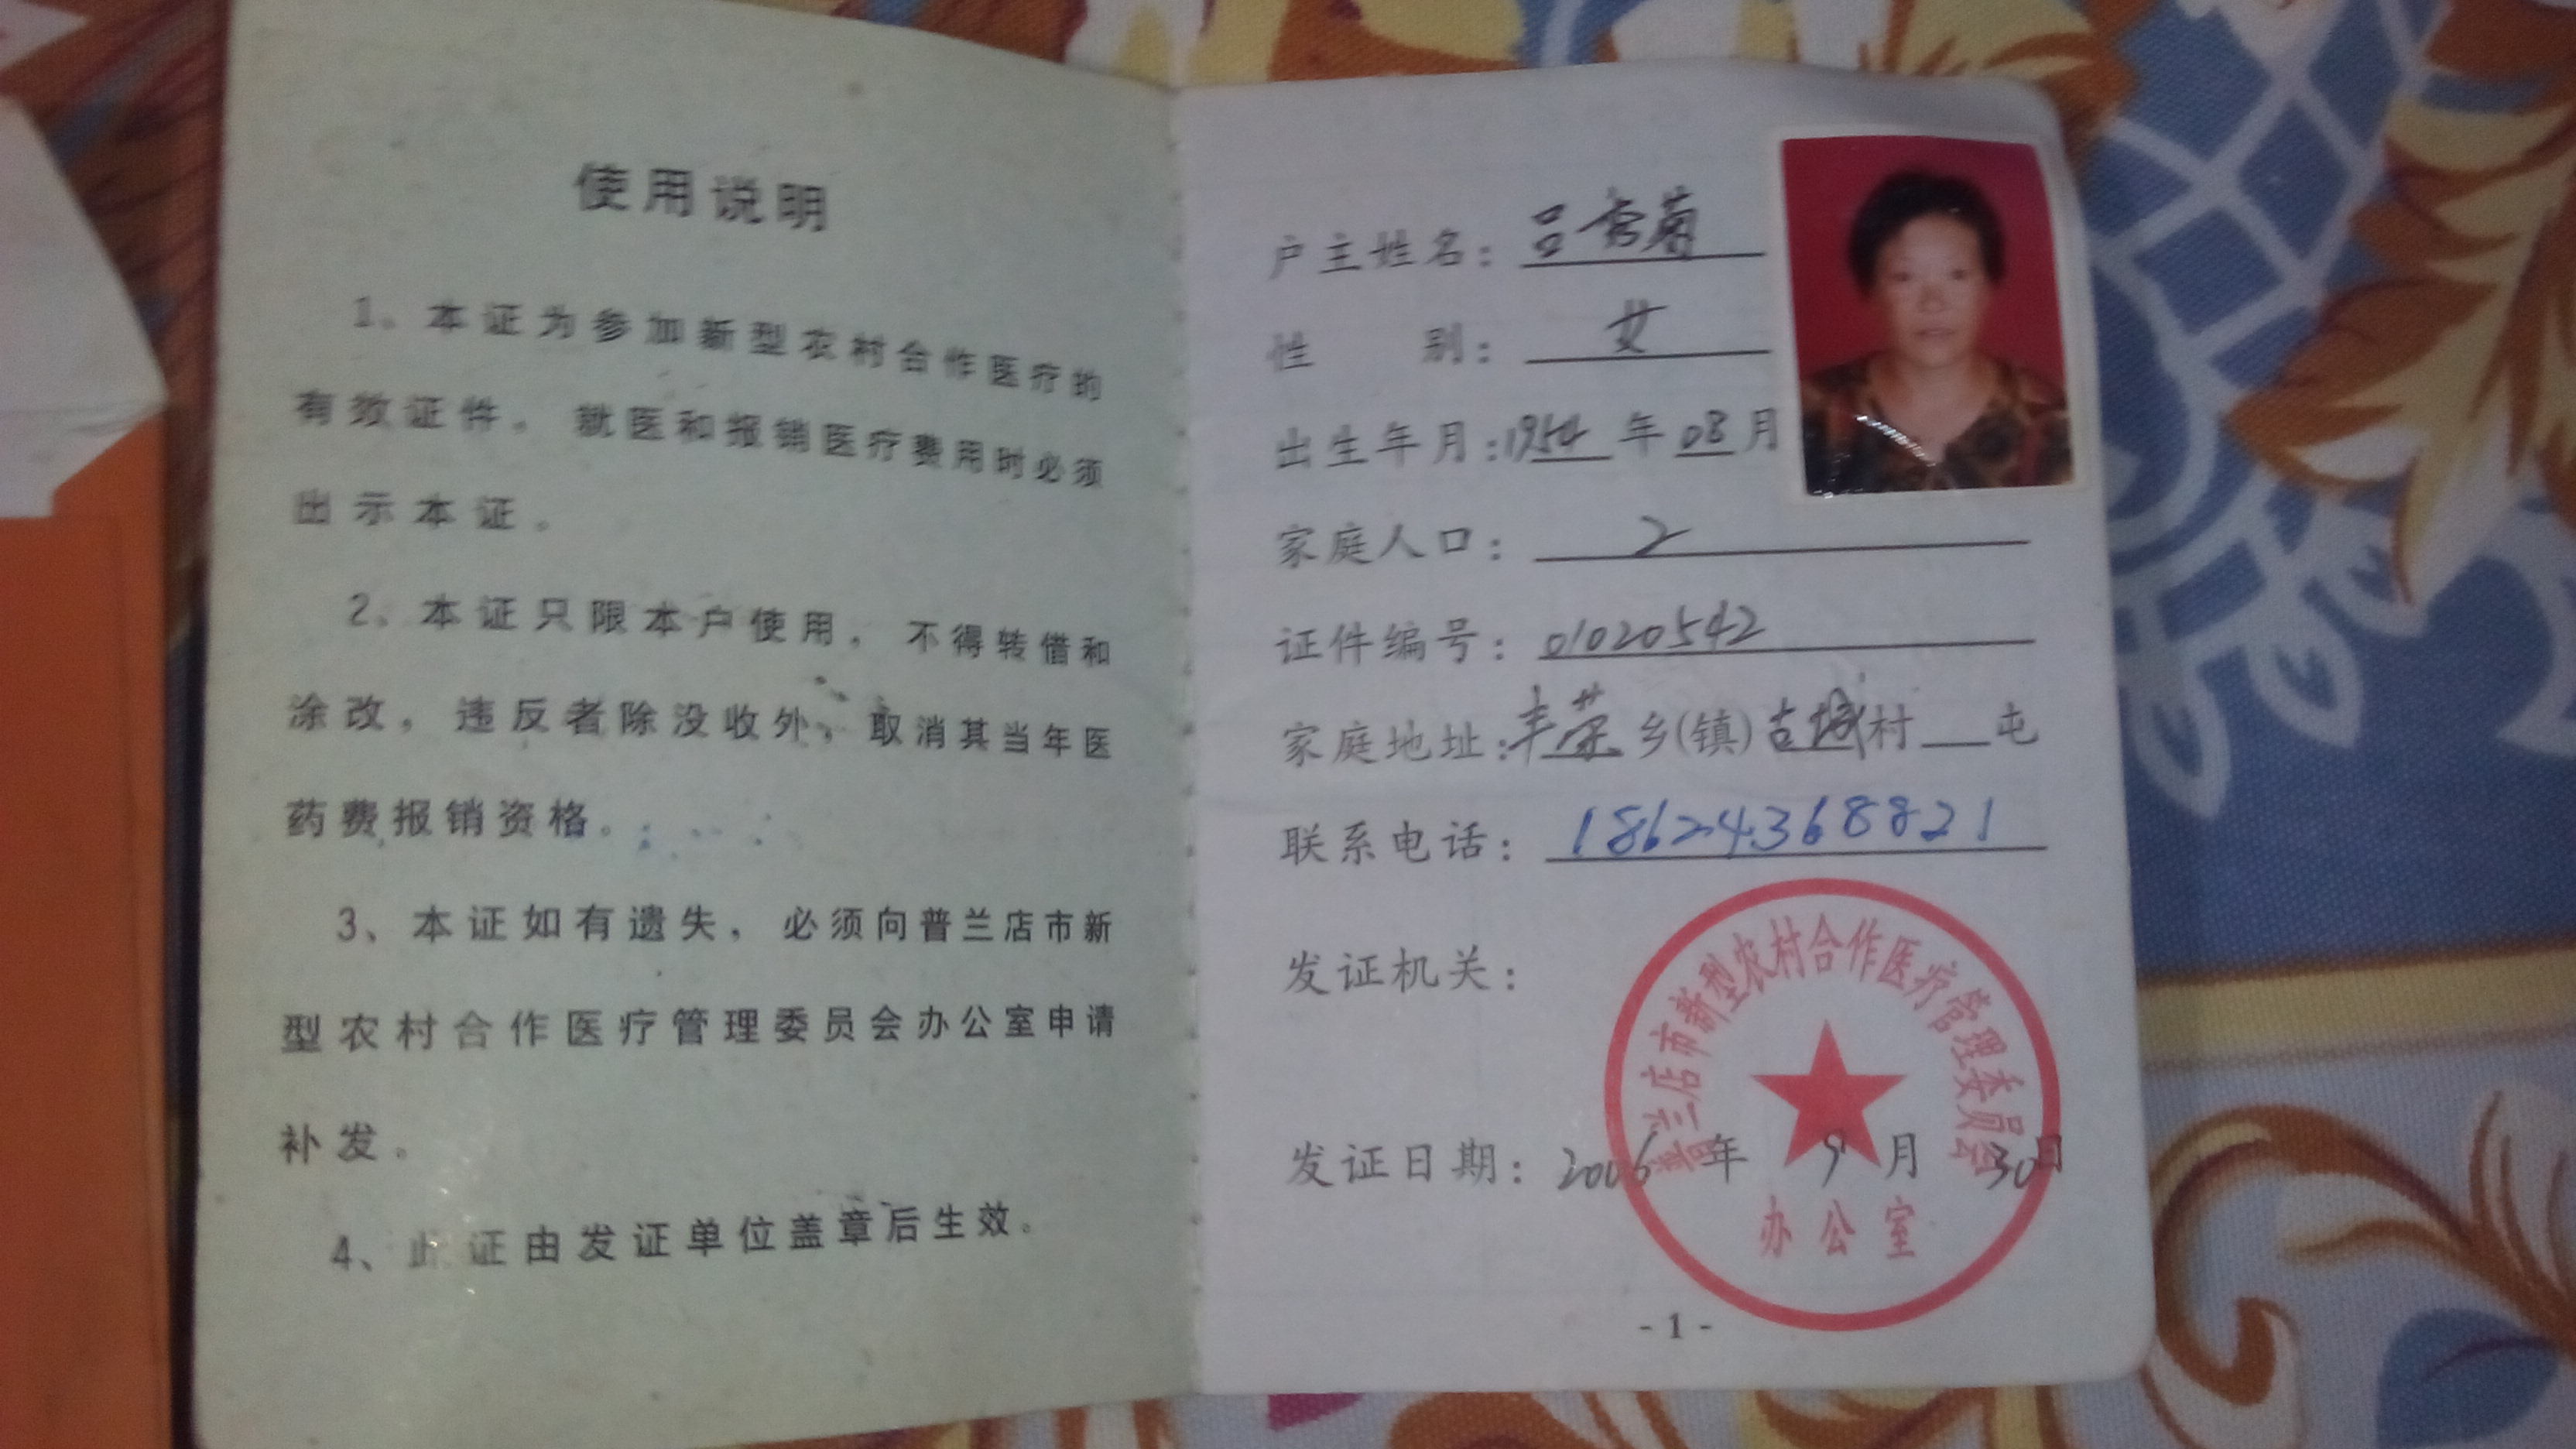 使用说明
1、本证为参加新型农村合作医疗的
有效证件。就医和报销医疗费用时必须
出示本证。
2、本证只限本户使用，不得转借和
涂改，违反者除没收外，取消其当年医
药费报销资格。
3、本证如有遗失，必须向普兰店市新
型农村合作医疗管理委员会办公室申请
补发。
4、此证由发证单位盖章后生效。
户主姓名：吕秀菊
性别：女
出生年月：1954年08月
家庭人口：2
证件编号：01020542
家庭地址：丰荣乡(镇)古城村 屯
联系电话：18624368821
发证机关：
普兰店市新型农村合作医疗管理委员会
发证日期：2006年9月30日
办公室
- 1 -